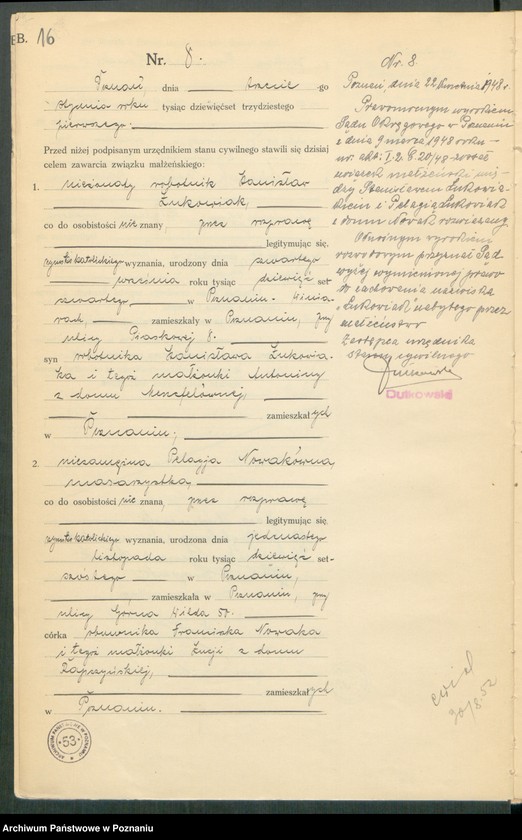 B. 16
Nr. 8.
Poznań, dnia trzeciego
stycznia roku tysiąc dziewięćset trzydziestego
pierwszego.
Przed niżej podpisanym urzędnikiem stanu cywilnego stawili się dzisiaj
celem zawarcia związku małżeńskiego:
1. nieżonaty robotnik Stanisław
Łukowiak,
co do osobistości nie znany, przez rozprawę
legitymując się,
rzymsko katolickiego wyznania, urodzony dnia czwartego
września roku tysiąc dziewięć set
czwartego w Poznaniu-Winia-
rach, zamieszkały w Poznaniu, przy
ulicy Piaskowej 8.
syn robotnika Stanisława Łukowia-
ka i tegoż małżonki Antoniny
z domu
zamieszkałych
w Poznaniu;
2. niezamężna Pelagja Nowakówna,
masarzystka,
co do osobistości nie znana, przez rozprawę
legitymując się,
rzymsko katolickiego wyznania, urodzona dnia jednastego
listopada roku tysiąc dziewięć set-
szóstego w Poznaniu,
zamieszkała w Poznaniu, przy
ulicy Górna Wilda 57.
córka obuwnika Franciszka Nowaka
i tegoż małżonki Łucji z domu
zamieszkałych
w Poznaniu.
Nr. 8
Poznań, dnia 22 kwietnia 1948 r.
Prawomocnym wyrokiem
Sądu Okręgowego w Poznaniu
z dnia 9 marca 1948 roku –
nr. akt: I.2.C.20/48 został
związek małżeński mię-
dzy Stanisławem Łukowia-
kiem i Pelagią Łukowiak
z domu Nowak rozwiązany
wyrokiem
rozwodowym przyznał Sąd
wyżej wymienionej prawo
do zachowania nazwiska
"Łukowiak" nabytego przez
małżeństwo
Zastępca urzędnika
stanu cywilnego
Dutkowski
30/8.52
ARCHIWUM PAŃSTWOWE W POZNANIU
53
Archiwum Państwowe w Poznaniu